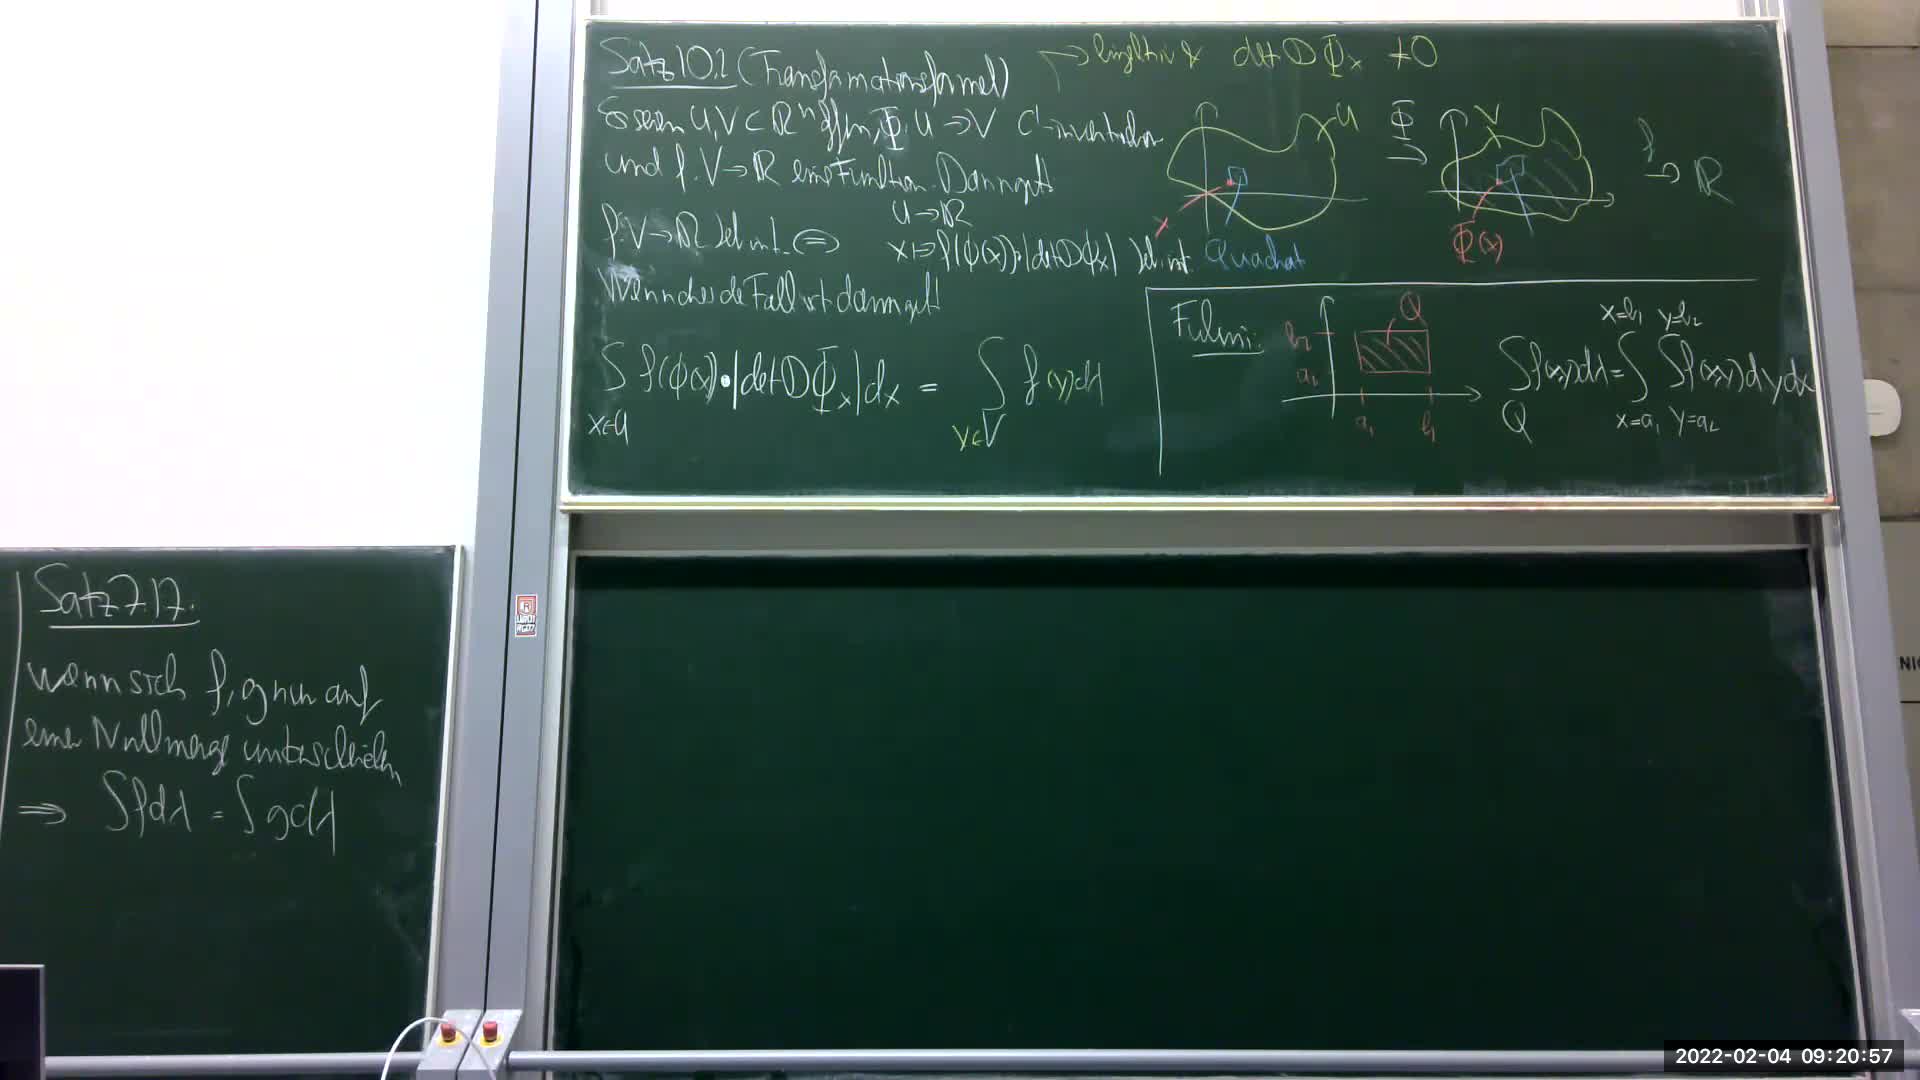 Satz 10.2 (Transformationsformel)
→ bijektiv & det DΦₓ ≠ 0
Es seien U,V ⊂ ℝⁿ offen, Φ: U → V C¹-invertierbar
und f: V → ℝ eine Funktion. Dann gilt
f: V → ℝ Leb. int. ⇔ U → ℝ
x ↦ f(Φ(x))·|det DΦₓ| Leb. int.
Wenn dies der Fall ist, dann gilt
∫ f(Φ(x))·|det DΦₓ| dx = ∫ f(y) dλ
x∈U y∈V
U Φ → V f → ℝ
x Quadrat Φ(x)
Fubini:
Q
b₂
a₂
a₁ b₁
x=b₁ y=b₂
∫ f(x,y) dλ = ∫ ∫ f(x,y) dy dx
Q x=a₁ y=a₂
Satz 7.17.
wenn sich f, g nur auf
einer Nullmenge unterscheiden
⇒ ∫f dλ = ∫g dλ
2022-02-04 09:20:57